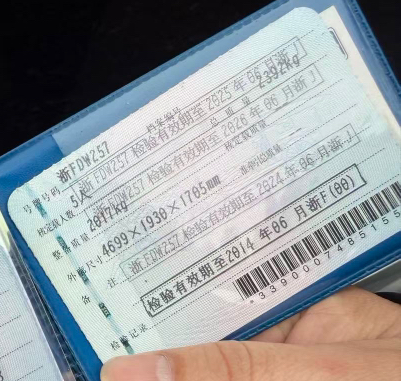 号牌号码 浙FDW257 档案编号
核定载人数 5人 总质量 2392kg
整备质量 2017kg 核定载质量
外廓尺寸 4699×1930×1705mm 准牵引总质量
备注
浙FDW257 检验有效期至2025年06月浙
浙FDW257 检验有效期至2026年06月浙
浙FDW257 检验有效期至2024年06月浙
检验记录
检验有效期至2014年06月浙F(00)
*3390007485155